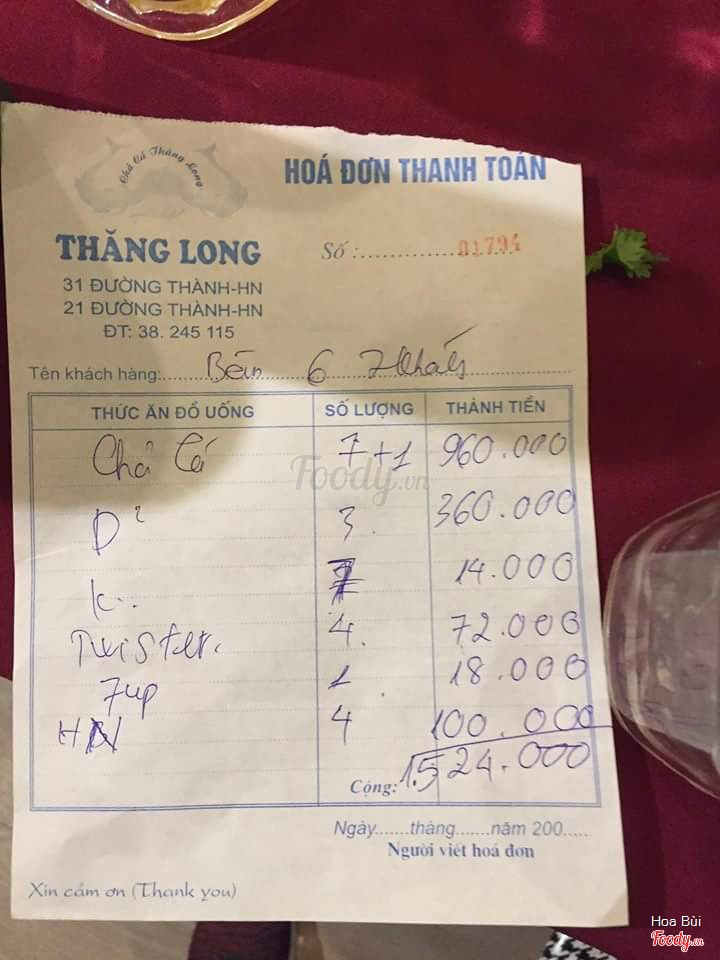 Chả Cá Thăng Long
HOÁ ĐƠN THANH TOÁN
THĂNG LONG
Số :............ 01794
31 ĐƯỜNG THÀNH-HN
21 ĐƯỜNG THÀNH-HN
ĐT: 38. 245 115
Tên khách hàng:......Bàn 6 7 khách
THỨC ĂN ĐỒ UỐNG SỐ LƯỢNG THÀNH TIỀN
Chả Cá 7+1 960.000
Foody.vn
D² 3. 360.000
K.. 14.000
Twister. 4. 72.000
7up 1 18.000
4 100.000
Cộng: 1.524.000
Ngày.......tháng.......năm 200.....
Người viết hoá đơn
Xin cảm ơn (Thank you)
Hoa Bùi
Foody.vn